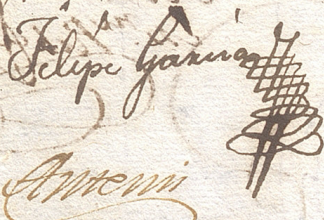 Felipe Garcia
Antemi